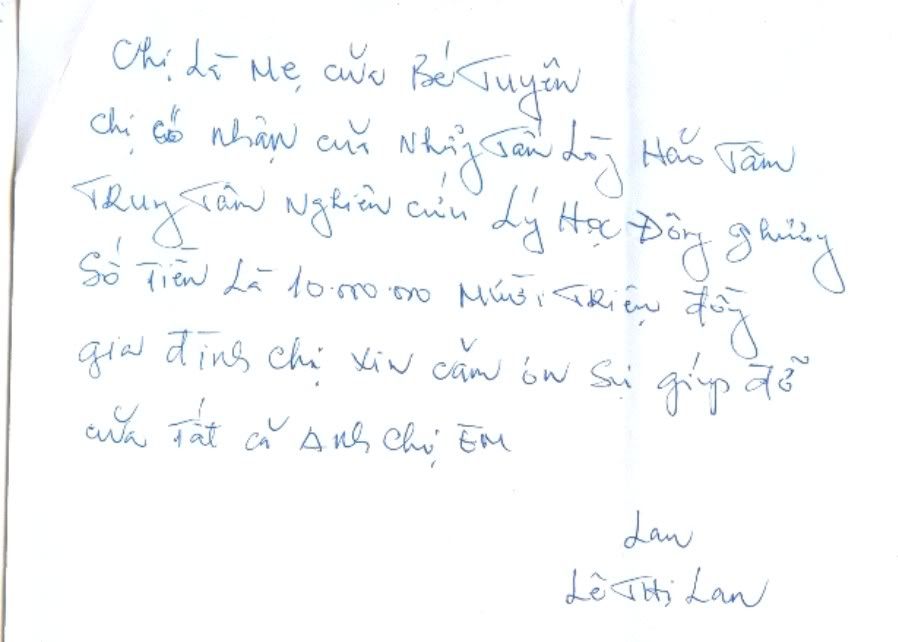 Chị Là Mẹ của Bé Tuyên
chị có nhận của Những Tấm Lòng Hảo Tâm
TRung Tâm Nghiên cứu Lý Học Đông phương
Số Tiền Là 10.000.000 Mười TRiệu đồng
gia đình chị xin cảm ơn Sự giúp đỡ
của Tất cả Anh chị EM
Lan
Lê THị Lan